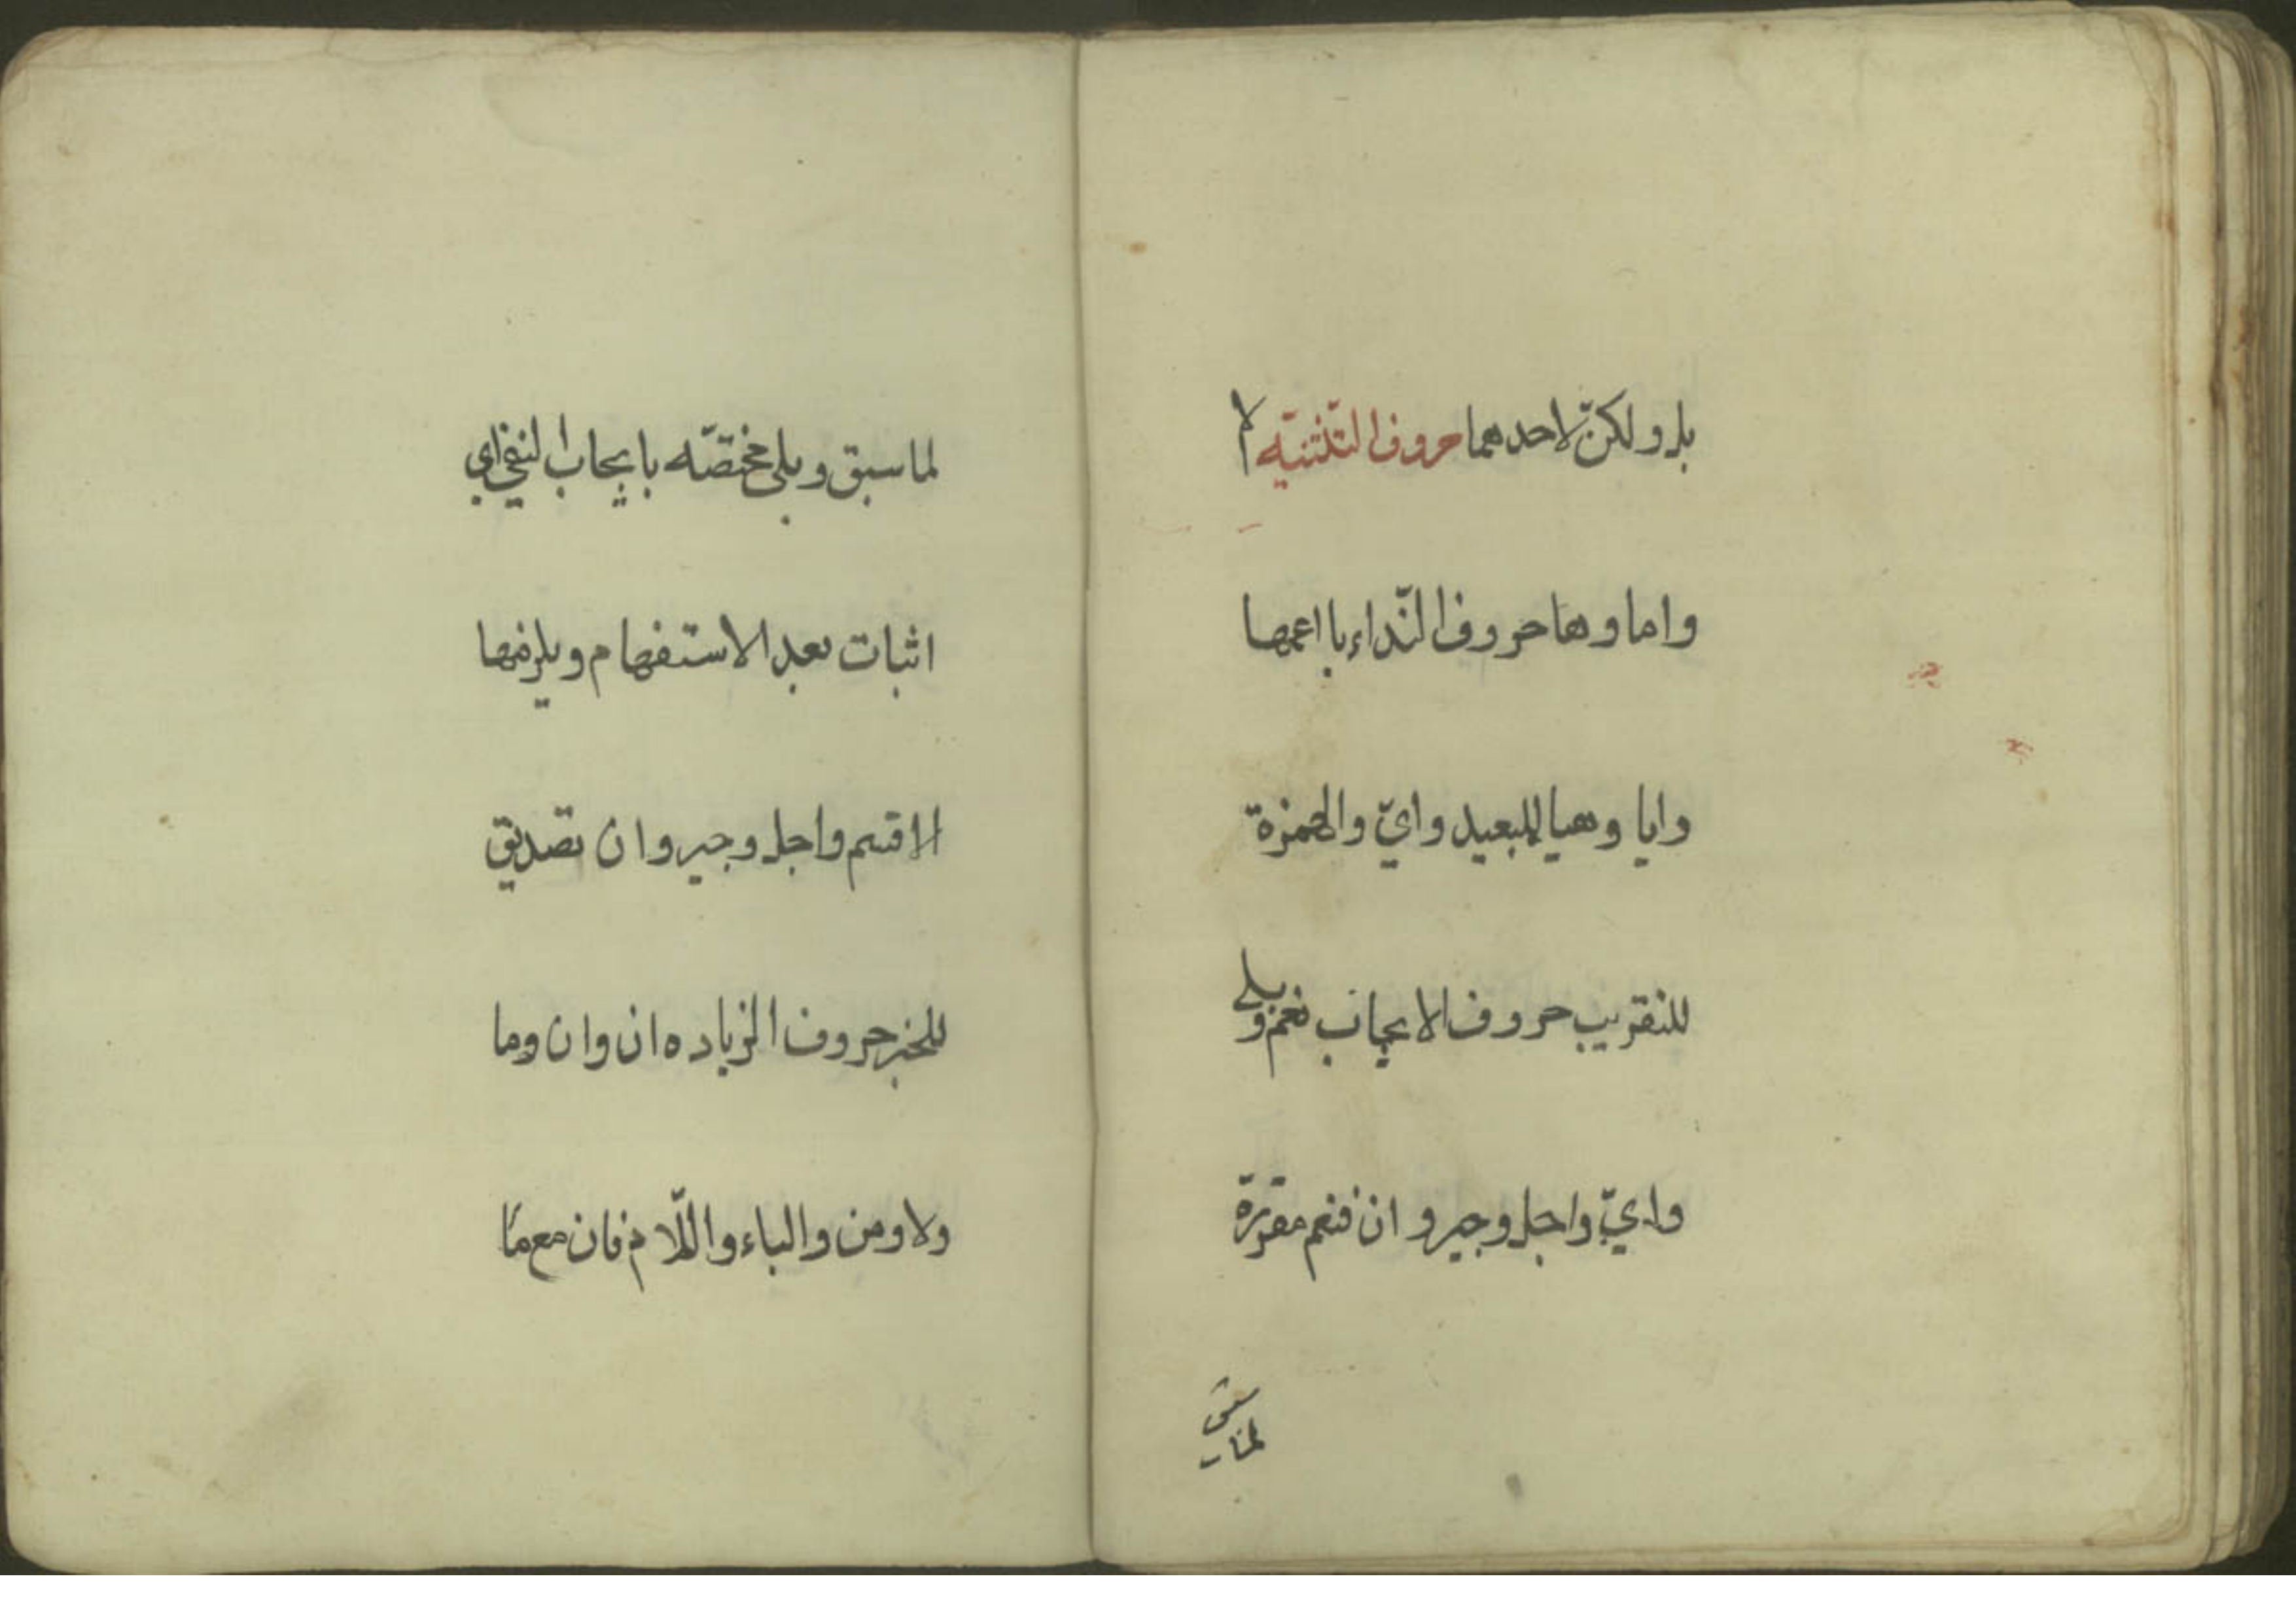 بل ولكنّ لاحدهما حروف التّثنيّه لا
واما وها حروف النّداء يا اعمها
وايا وهيا للبعيد وايّ والهمزة
للنقريب حروف الايجاب نعم وبلى
وايّ واجل وجير وان فنعم مقررة
لما سبق
لما سبق وبلى مختصّه بايجاب النفي اي
اثبات بعد الاستفهام ويلزمها
الاقسم واجل وجير وان تصديق
للخبر حروف الزياده ان وان وما
ولا ومن والباء واللّام فان مع ما